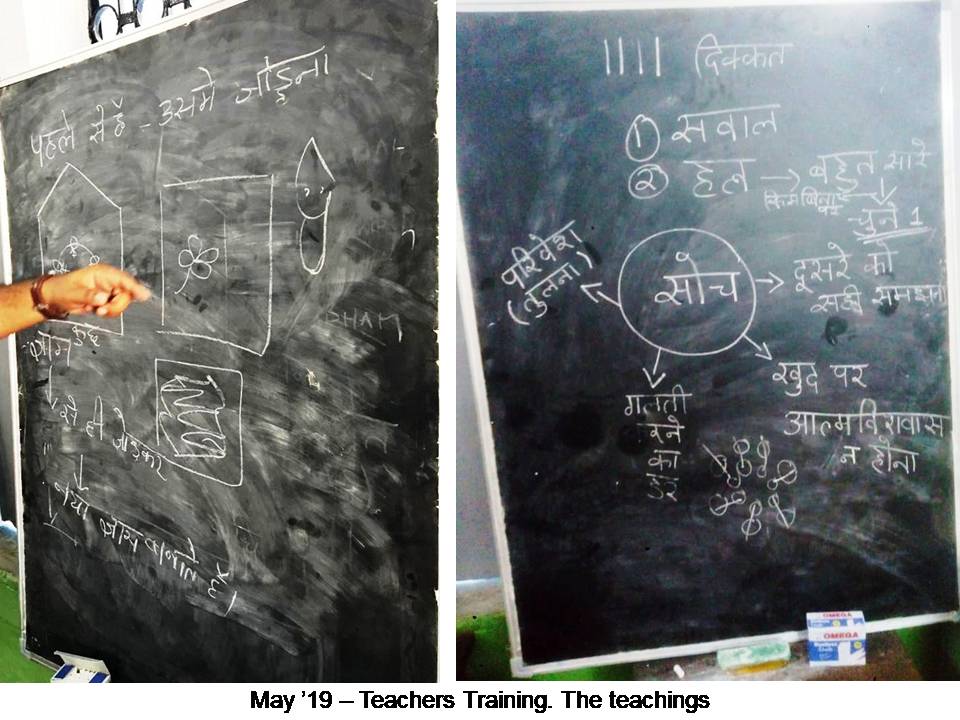 पहले से है - उसमे जोड़ना
कुछ
से ही जोड़कर
नया
DHAM
|||| दिक्कत
① सवाल
② हल → बहुत सारे
चुने 1
सोच
परिवेश
(तुलना)
दूसरे को
सही समझना
खुद पर
आत्मविश्वास
न होना
गलती
रने
का
डर
OMEGA
OMEGA
May '19 – Teachers Training. The teachings